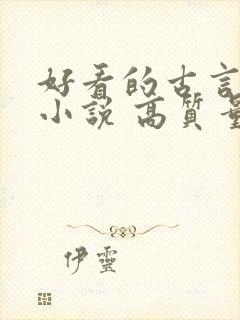 好看的古言
小說 高質量
伊靈